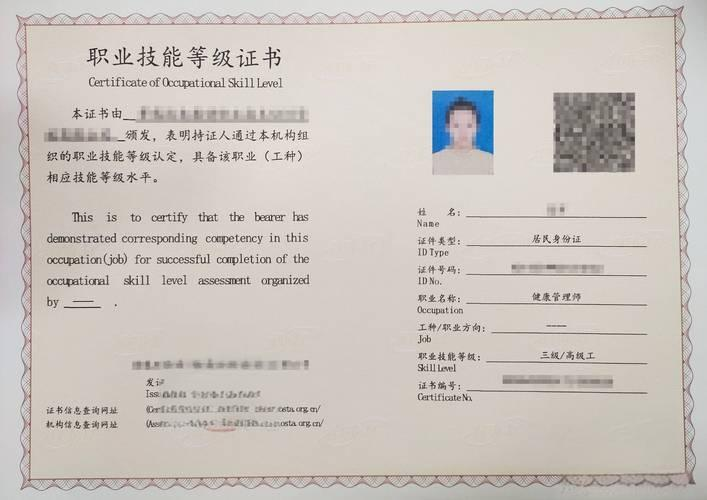 职业技能等级证书
Certificate of Occupational Skill Level
本证书由
颁发，表明持证人通过本机构组
织的职业技能等级认定，具备该职业（工种）
相应技能等级水平。
This is to certify that the bearer has
demonstrated corresponding competency in this
occupation(job) for successful completion of the
occupational skill level assessment organized
by —— .
发证
Issu
证书信息查询网址
osta.org.cn/
机构信息查询网址
osta.org.cn/
姓 名：
Name
证件类型： 居民身份证
ID Type
证件号码：
ID No.
职业名称： 健康管理师
Occupation
工种/职业方向： ----
Job
职业技能等级： 三级/高级工
Skill Level
证书编号：
Certificate No.